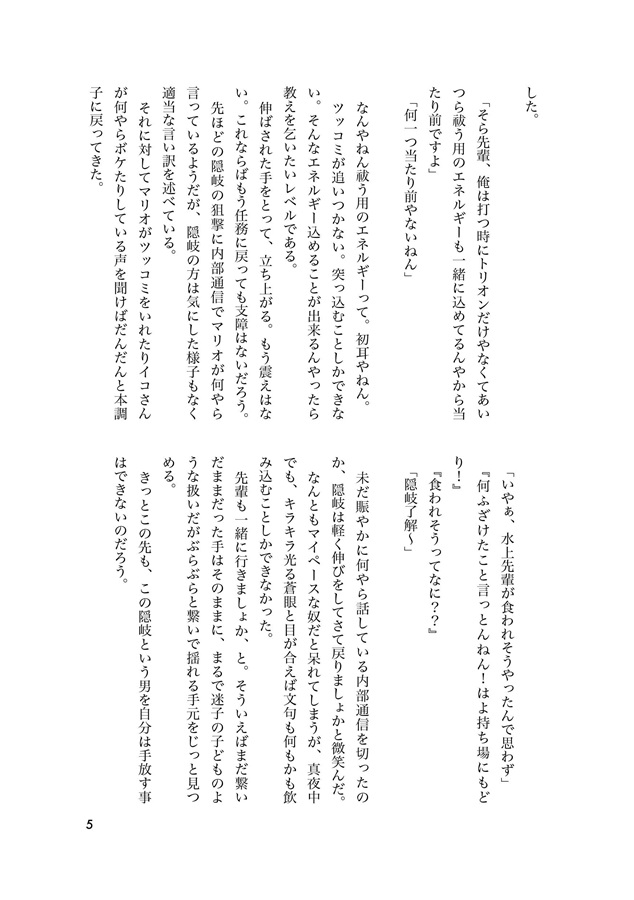 した。
「そら先輩、俺は打つ時にトリオンだけやなくてあい
つら祓う用のエネルギーも一緒に込めてるんやから当
たり前ですよ」
「何一つ当たり前やないねん」
なんやねん祓う用のエネルギーって。初耳やねん。
ツッコミが追いつかない。突っ込むことしかできな
い。そんなエネルギー込めることが出来るんやったら
教えを乞いたいレベルである。
伸ばされた手をとって、立ち上がる。もう震えはな
い。これならばもう任務に戻っても支障はないだろう。
先ほどの隠岐の狙撃に内部通信でマリオが何やら
言っているようだが、隠岐の方は気にした様子もなく
適当な言い訳を述べている。
それに対してマリオがツッコミをいれたりイコさん
が何やらボケたりしている声を聞けばだんだんと本調
子に戻ってきた。
「いやぁ、水上先輩が食われそうやったんで思わず」
『何ふざけたこと言っとんねん！はよ持ち場にもど
り！』
『食われそうってなに？？』
「隠岐了解〜」
未だ賑やかに何やら話している内部通信を切ったの
か、隠岐は軽く伸びをしてさて戻りましょかと微笑んだ。
なんともマイペースな奴だと呆れてしまうが、真夜中
でも、キラキラ光る蒼眼と目が合えば文句も何もかも飲
み込むことしかできなかった。
先輩も一緒に行きましょか、と。そういえばまだ繋い
だままだった手はそのままに、まるで迷子の子どものよ
うな扱いだがぶらぶらと繋いで揺れる手元をじっと見つ
める。
きっとこの先も、この隠岐という男を自分は手放す事
はできないのだろう。
5